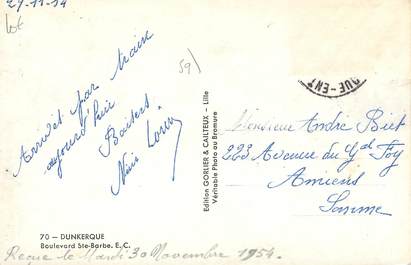 29-11-54
Lot
59
Arrivés par train
aujourd'hui
Baisers
QUE-ENT
Edition GORLIER & CAILTEUX - Lille
Véritable Photo au Bromure
Monsieur André Biet
223 Avenue du Gal Foy
Amiens
Somme
70 — DUNKERQUE
Boulevard Ste-Barbe. E.C.
Reçue le Mardi 30 Novembre 1954.